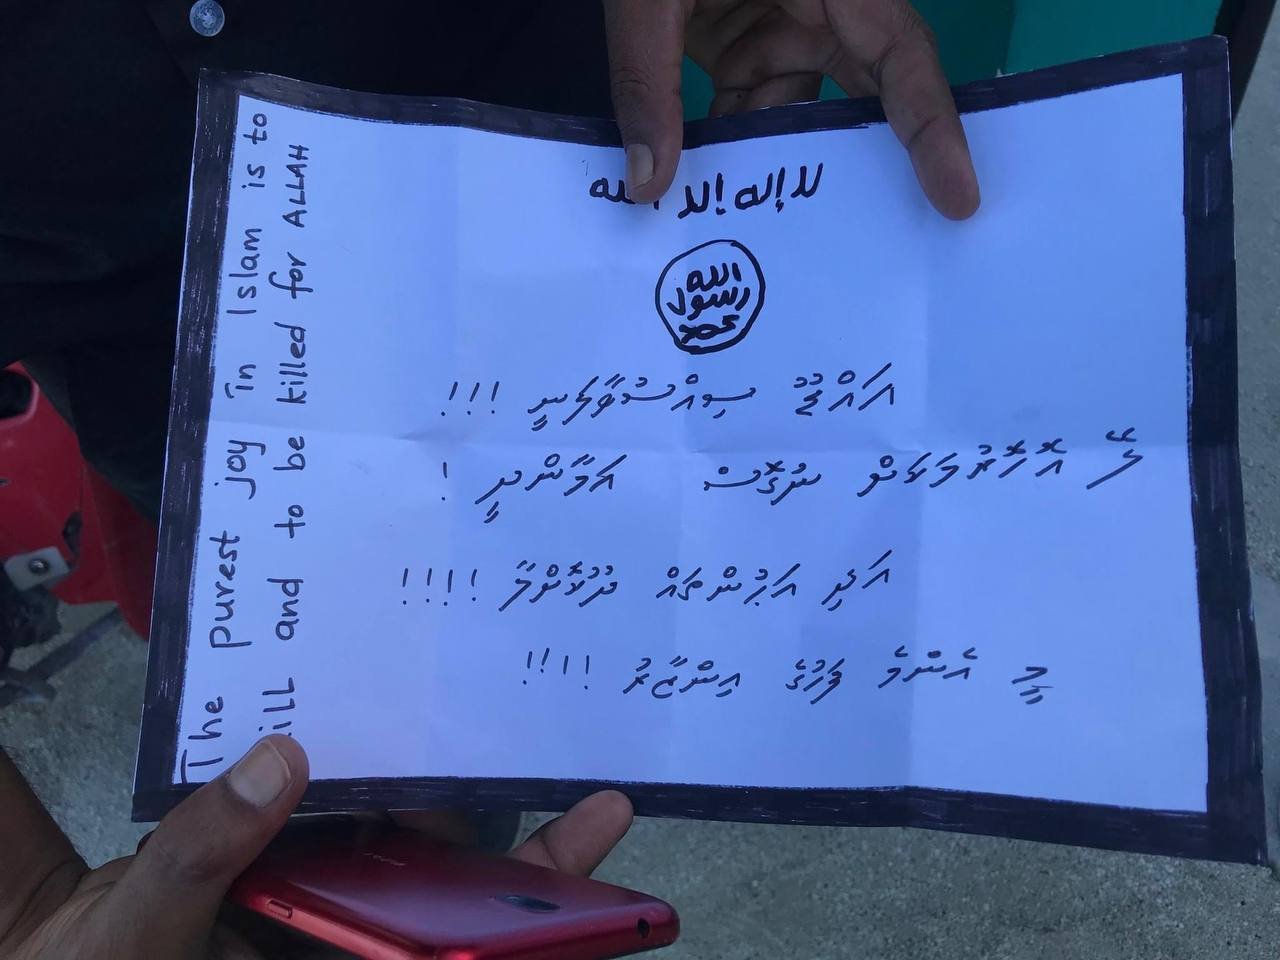 لا إله إلا الله
الله
رسول
محمد
އައްޑޫ ސިއްސުވާލަނީ !!!
ލޭ އޮހޮރުމަކަށް ނުގޮސް އަމާންދީ !
އަދި އަޚުންތައް ދޫކޮށްލާ !!!!
މީ އެންމެ ފަހުގެ އިންޒާރު !!!!
The purest joy in Islam is to
kill and to be killed for ALLAH